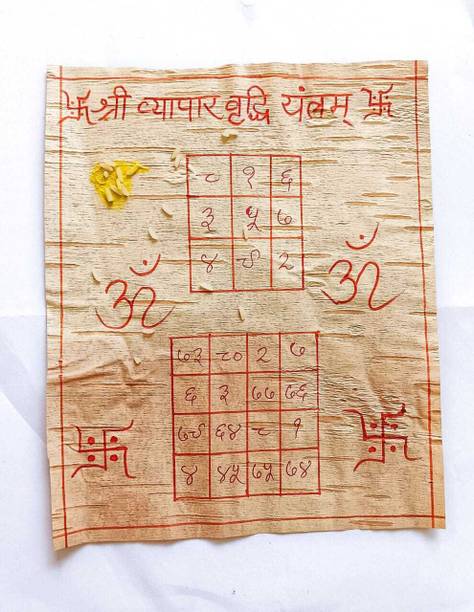 श्री व्यापार वृद्धि यंत्रम्
८ १ ६
३ ५ ७
ॐ ४ ९ २ ॐ
७३ ८० २ ७
६ ३ ७७ ७६
७९ ६४ ८ १
४ ४५ ७५ ७४